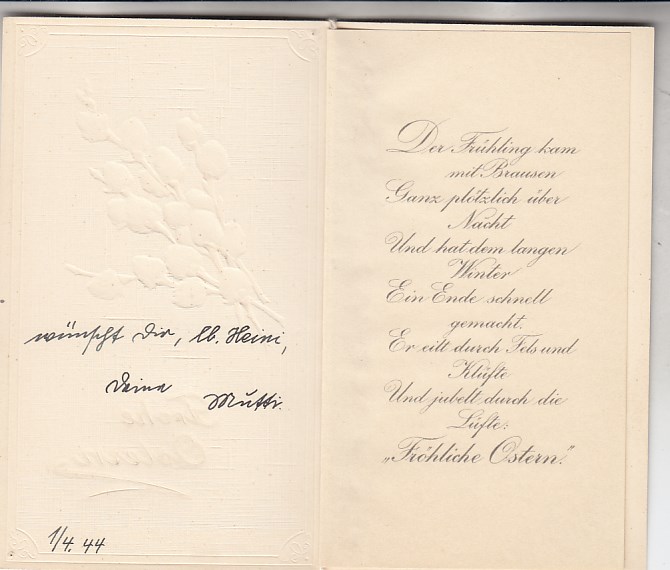 wünscht Dir, lb. Heini,
Deine Mutti.
Frohe
Ostern
1/4. 44
Der Frühling kam
mit Brausen
Ganz plötzlich über
Nacht
Und hat dem langen
Winter
Ein Ende schnell
gemacht.
Er eilt durch Fels und
Klüfte
Und jubelt durch die
Lüfte:
„Fröhliche Ostern."